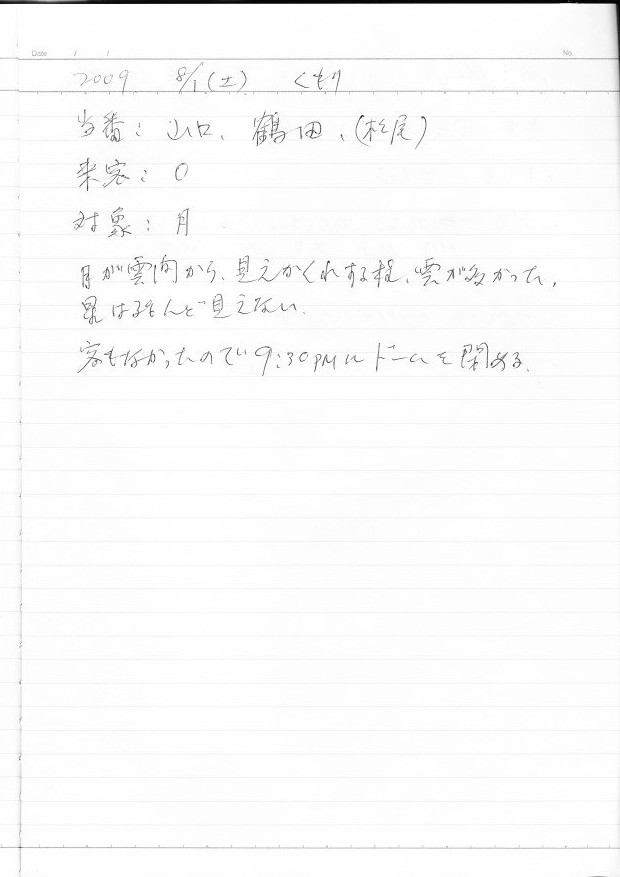 Date / / No.
2009 8/1(土) くもり
当番: 山口、鶴田、(松尾)
来客: 0
対象: 月
月が雲間から、見えかくれする程、雲が多かった。
星はほとんど見えない.
客もなかったので9:30PMにドームを閉める.